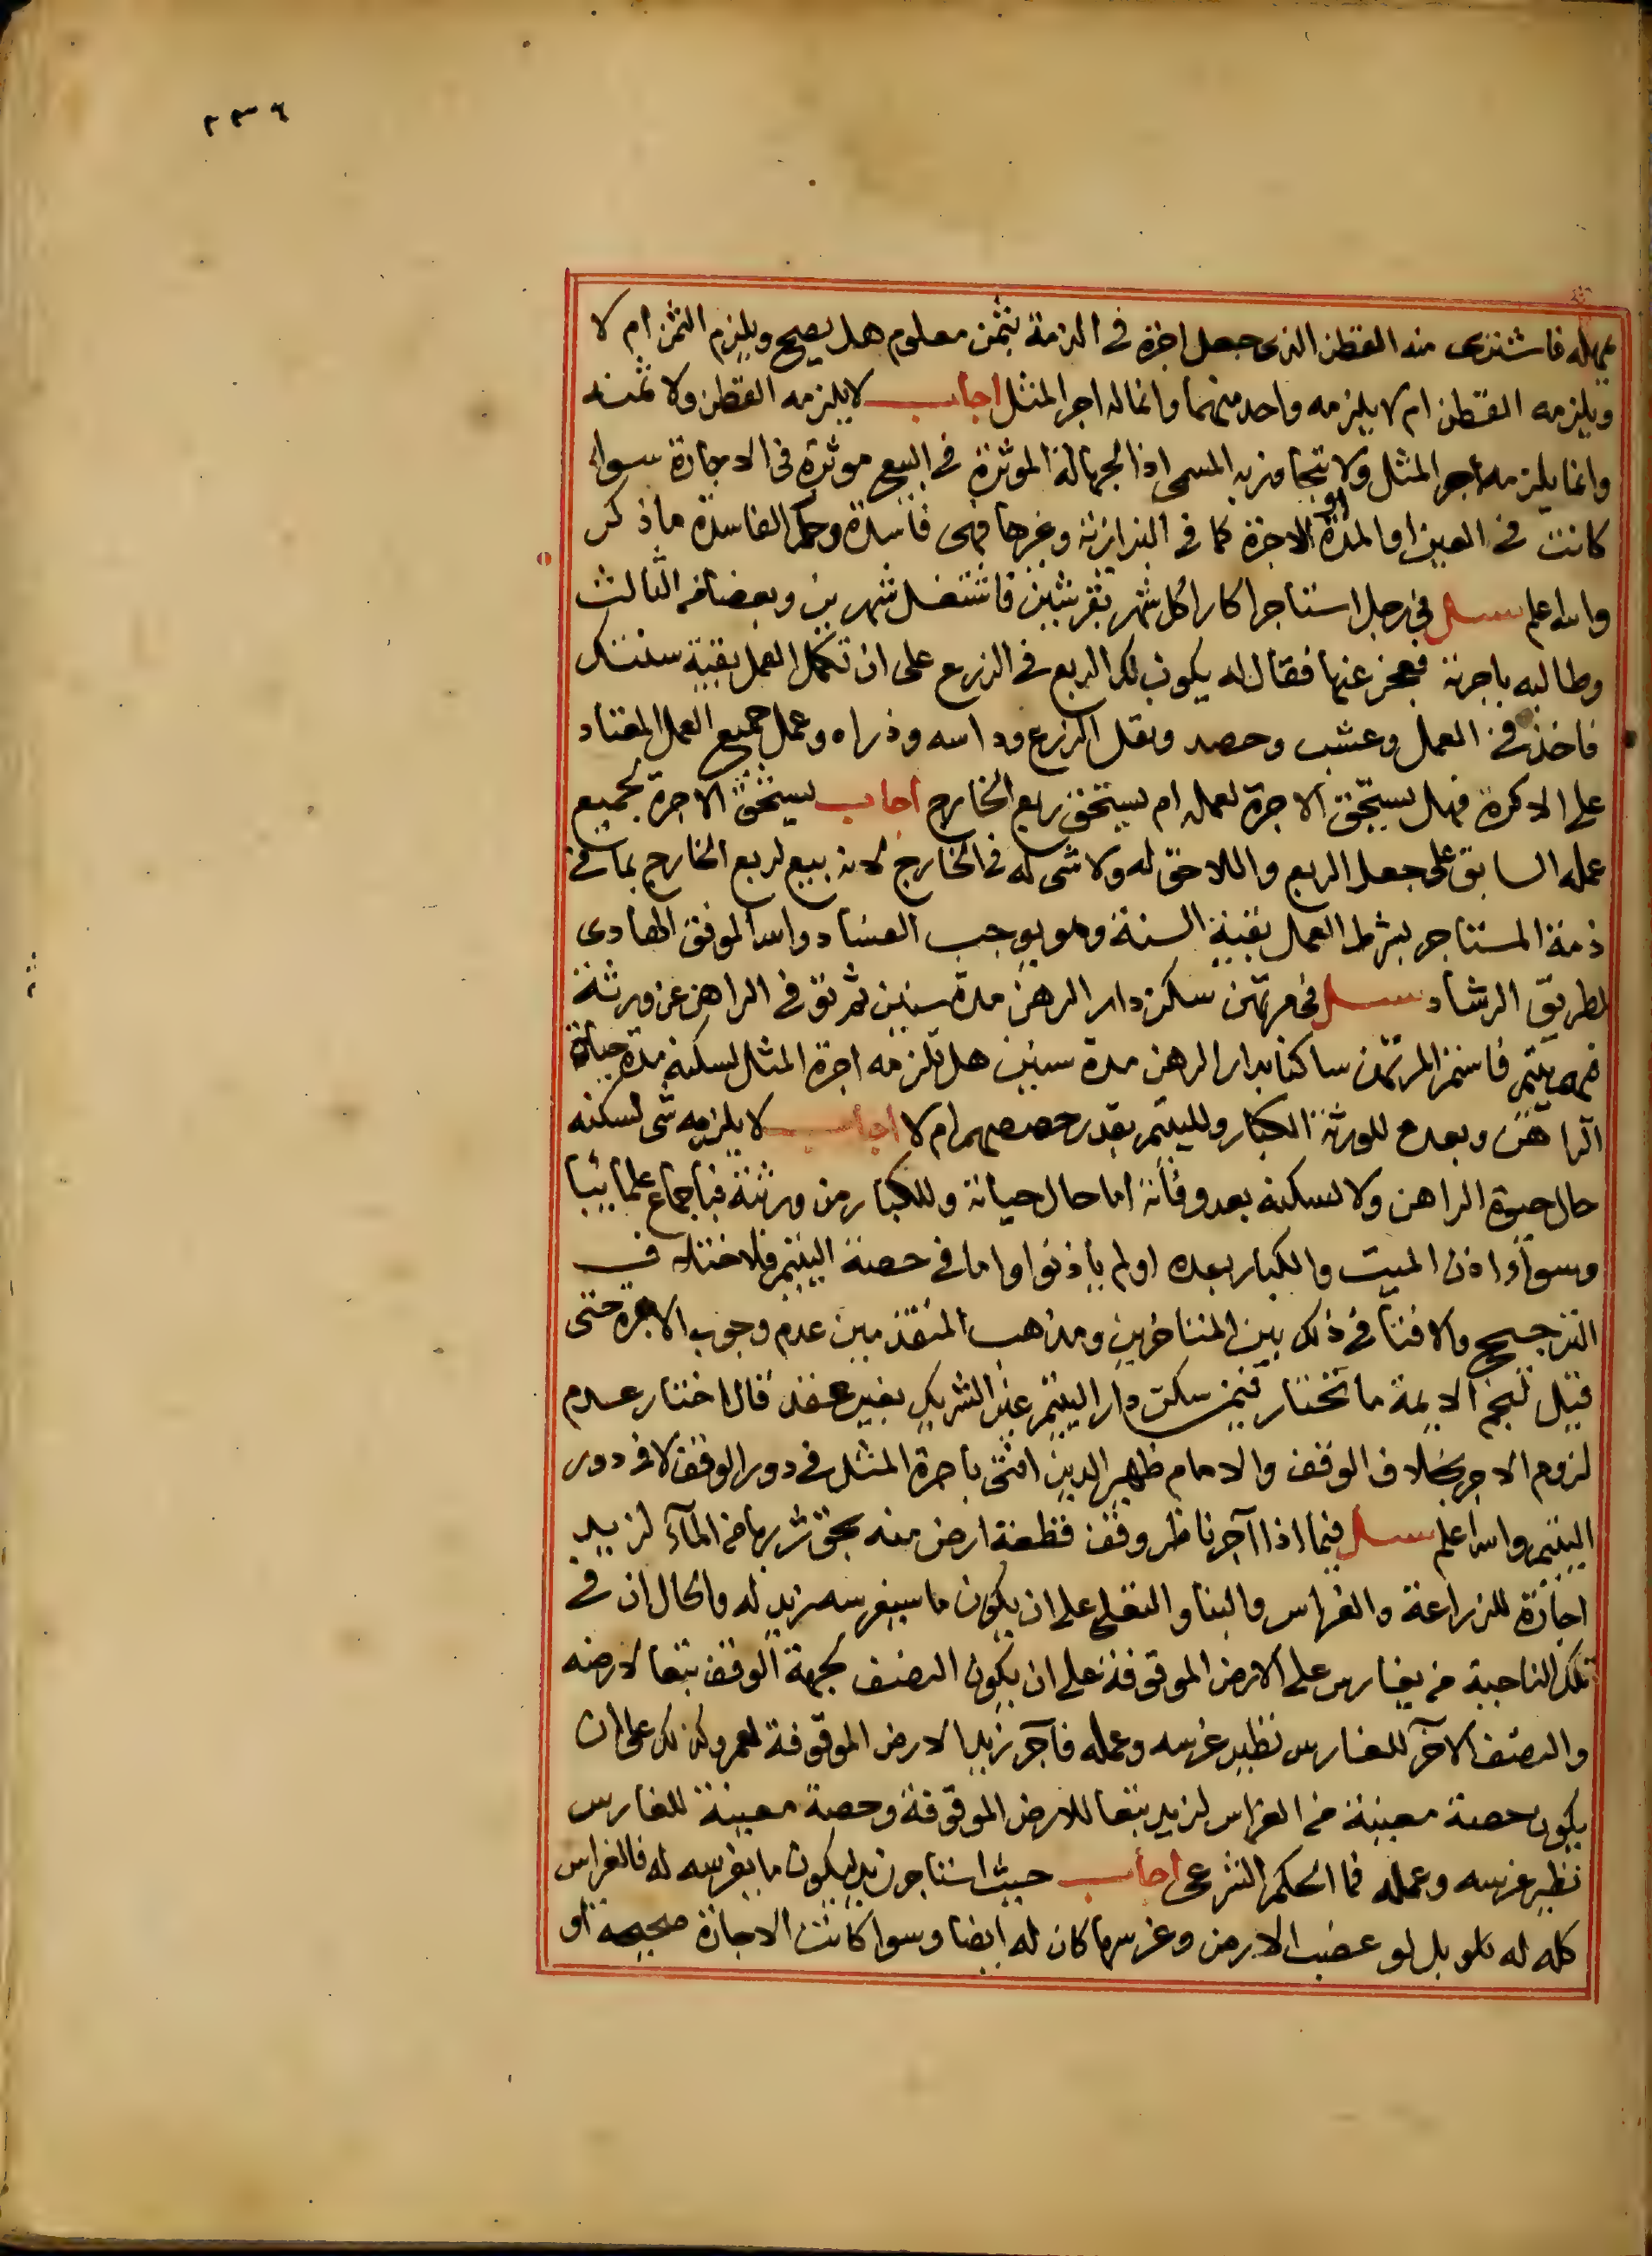 ٢٣٦
عمله فاشترى منه القطن الذى جعل اجرة فى الذمة بثمن معلوم هل يصح ويلزم الثمن ام لا
ويلزمه القطن ام لا يلزمه واحد منهما وانما له اجر المثل اجاب لا يلزمه القطن ولا ثمنه
وانما يلزمه اجر المثل ولا يتجاوز به المسمى اذ الجهالة الموثرة فى البيع موثرة فى الاجارة سواء
كانت فى العين او المدة او الاجرة كما فى البزازية وغيرها فهى فاسدة وحكم الفاسدة ما ذكر
والله اعلم سئل فى رجل استاجر اكارا كل شهر بقرشين فاشتغل شهرين وبعضا من الثالث
وطالبه باجرته فعجز عنها فقال له يكون لك الربع فى الزرع على ان تكمل العمل بقية سنتك
فاخذ فى العمل وعشب وحصد ونقل الزرع وداسه وذراه وعمل جميع العمل المعتاد
على الاكرة فهل يستحق الاجرة لعمله ام يستحق ربع الخارج اجاب يستحق الاجرة بجميع
عمله السابق على جعل الربع واللاحق له ولا شى له فى الخارج لانه بيع لربع الخارج بما فى
ذمة المستاجر بشرط العمل بقية السنة وهو يوجب الفساد والله الموفق الهادى
لطريق الرشاد سئل فى مرتهن سكن دار الرهن مدة سنين ثم توفى الراهن عن ورثة
فيهم يتيم فاستمر المرتهن ساكنا بدار الرهن مدة سنين هل تلزمه اجرة المثل لسكنه مدة حياة
الراهن وبعده للورثة الكبار ولليتيم بقدر حصصهم ام لا اجاب لا يلزمه شى لسكنه
حال حيوة الراهن ولا لسكنه بعد وفاته اما حال حياته وللكبار من ورثته فباجماع علمائنا
وسواء اذن الميت والكبار بعده او لم ياذنوا واما فى حصة اليتيم فلاختلاف فى
الترجيح والافتا فى ذلك بين المتاخرين ومذهب المتقدمين عدم وجوب الاجرة حتى
قيل لنجم الايمة ما تختار فيمن سكن دار اليتيم عن الشريك بغير عقد قال اختار عدم
لزوم الاجر بخلاف الوقف والامام ظهير الدين افتى باجرة المثل فى دور الوقف لا فى دور
اليتيم والله اعلم سئل فيما اذا آجر ناظر وقف قطعة ارض منه بحق شربها من المآء لزيد
اجارة للزراعة والغراس والبنا والتعلى على ان يكون ما سيغرسه زيد له والحال ان فى
تلك الناحية من يغارس على الارض الموقوفة على ان يكون النصف لجهة الوقف تبعا لارضه
والنصف الآخر للغارس نظير غرسه وعمله فآجر زيد الارض الموقوفة لعمرو كذلك على ان
يكون حصة معينة من الغراس لزيد تبعا للارض الموقوفة وحصة معينة للغارس
نظير غرسه وعمله فما الحكم الشرعى اجاب حيث استاجر زيد ليكون ما يغرسه له فالغراس
كله له بل لو غصب الارض وغرسها كان له ايضا وسوا كانت الاجارة صحيحة او